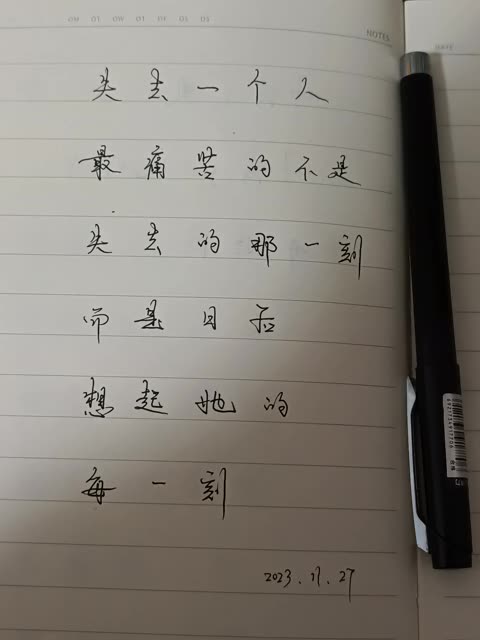 NOTES
DATE
失去一个人
最痛苦的不是
失去的那一刻
而是日后
想起她的
每一刻
2023.11.27